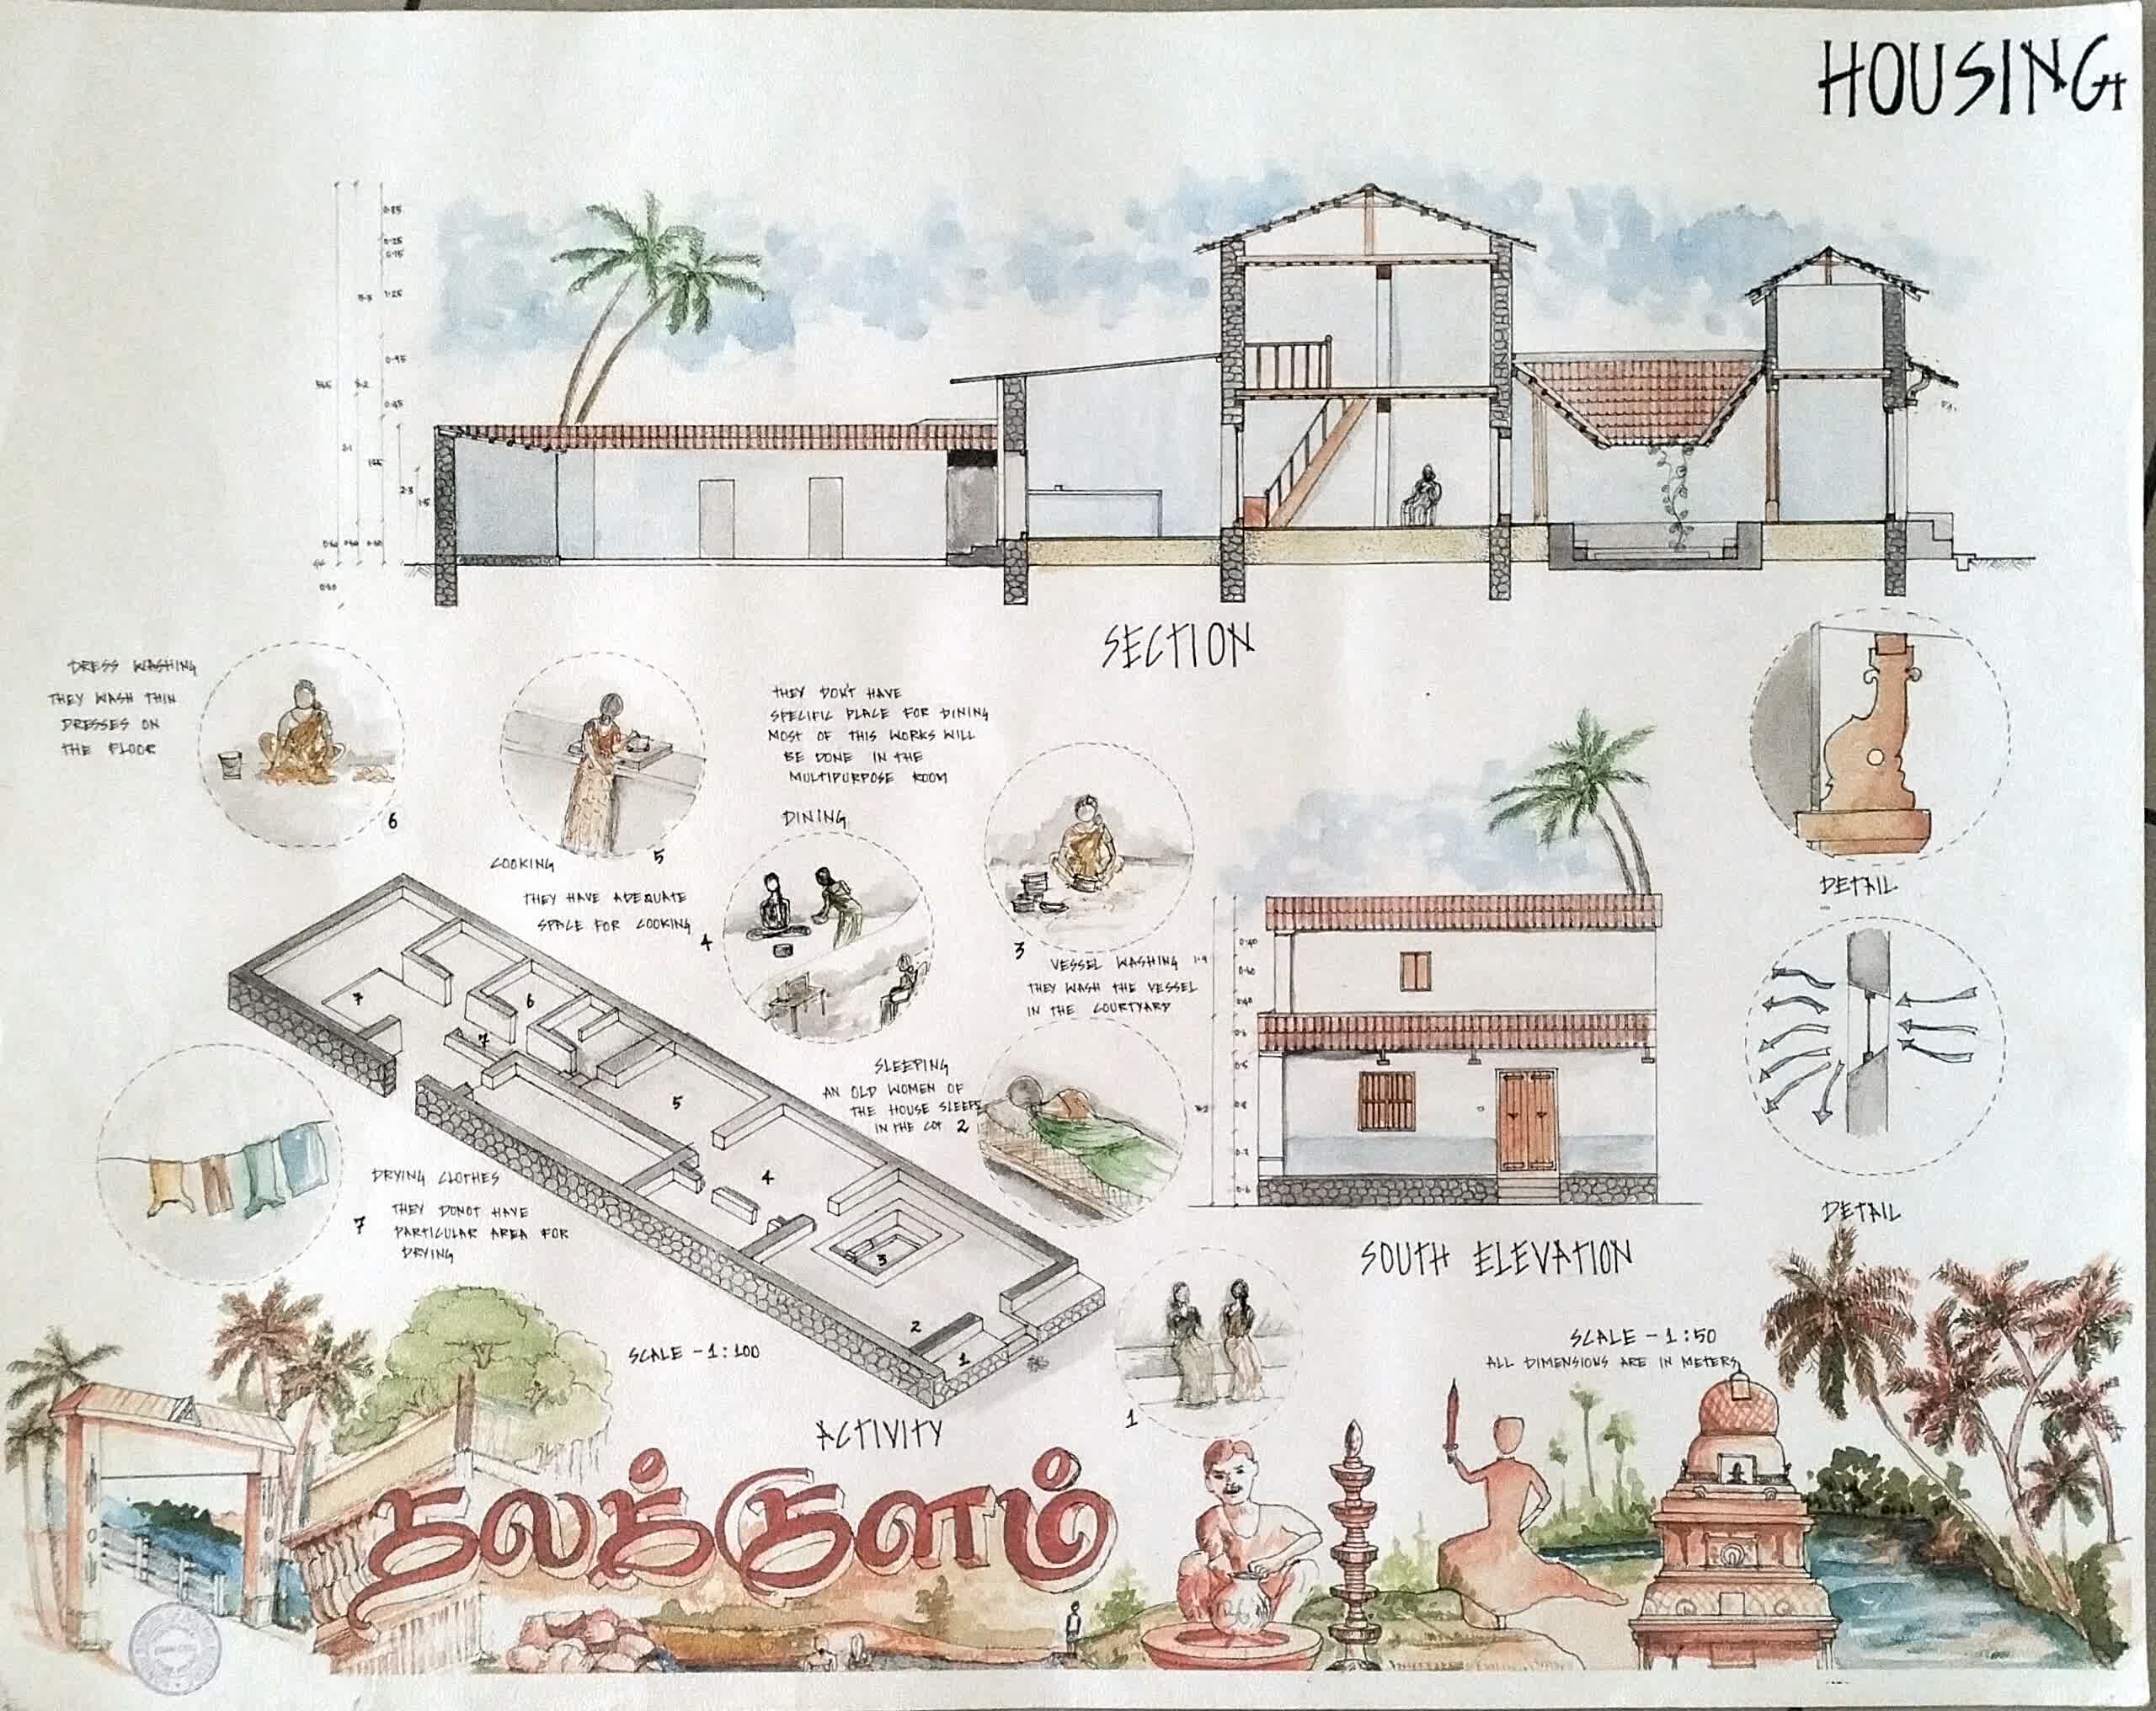 HOUSING
0.85
0.25
0.75
5.3
1.25
0.95
0.45
2.3
1.5
SECTION
DRESS WASHING
THEY WASH THIN
DRESSES ON
THE FLOOR
6
COOKING
5
THEY HAVE ADEQUATE
SPACE FOR COOKING
THEY DON'T HAVE
SPECIFIC PLACE FOR DINING
MOST OF THIS WORKS WILL
BE DONE IN THE
MULTIPURPOSE ROOM
DINING
4
3
VESSEL WASHING
THEY WASH THE VESSEL
IN THE COURTYARD
SLEEPING
AN OLD WOMEN OF
THE HOUSE SLEEPS
IN THE COT 2
DRYING CLOTHES
7
THEY DONOT HAVE
PARTICULAR AREA FOR
DRYING
7
6
7
5
4
3
2
1
SCALE - 1:100
ACTIVITY
1
1.9
SOUTH ELEVATION
SCALE - 1:50
ALL DIMENSIONS ARE IN METERS
DETAIL
DETAIL
தலக்குளம்